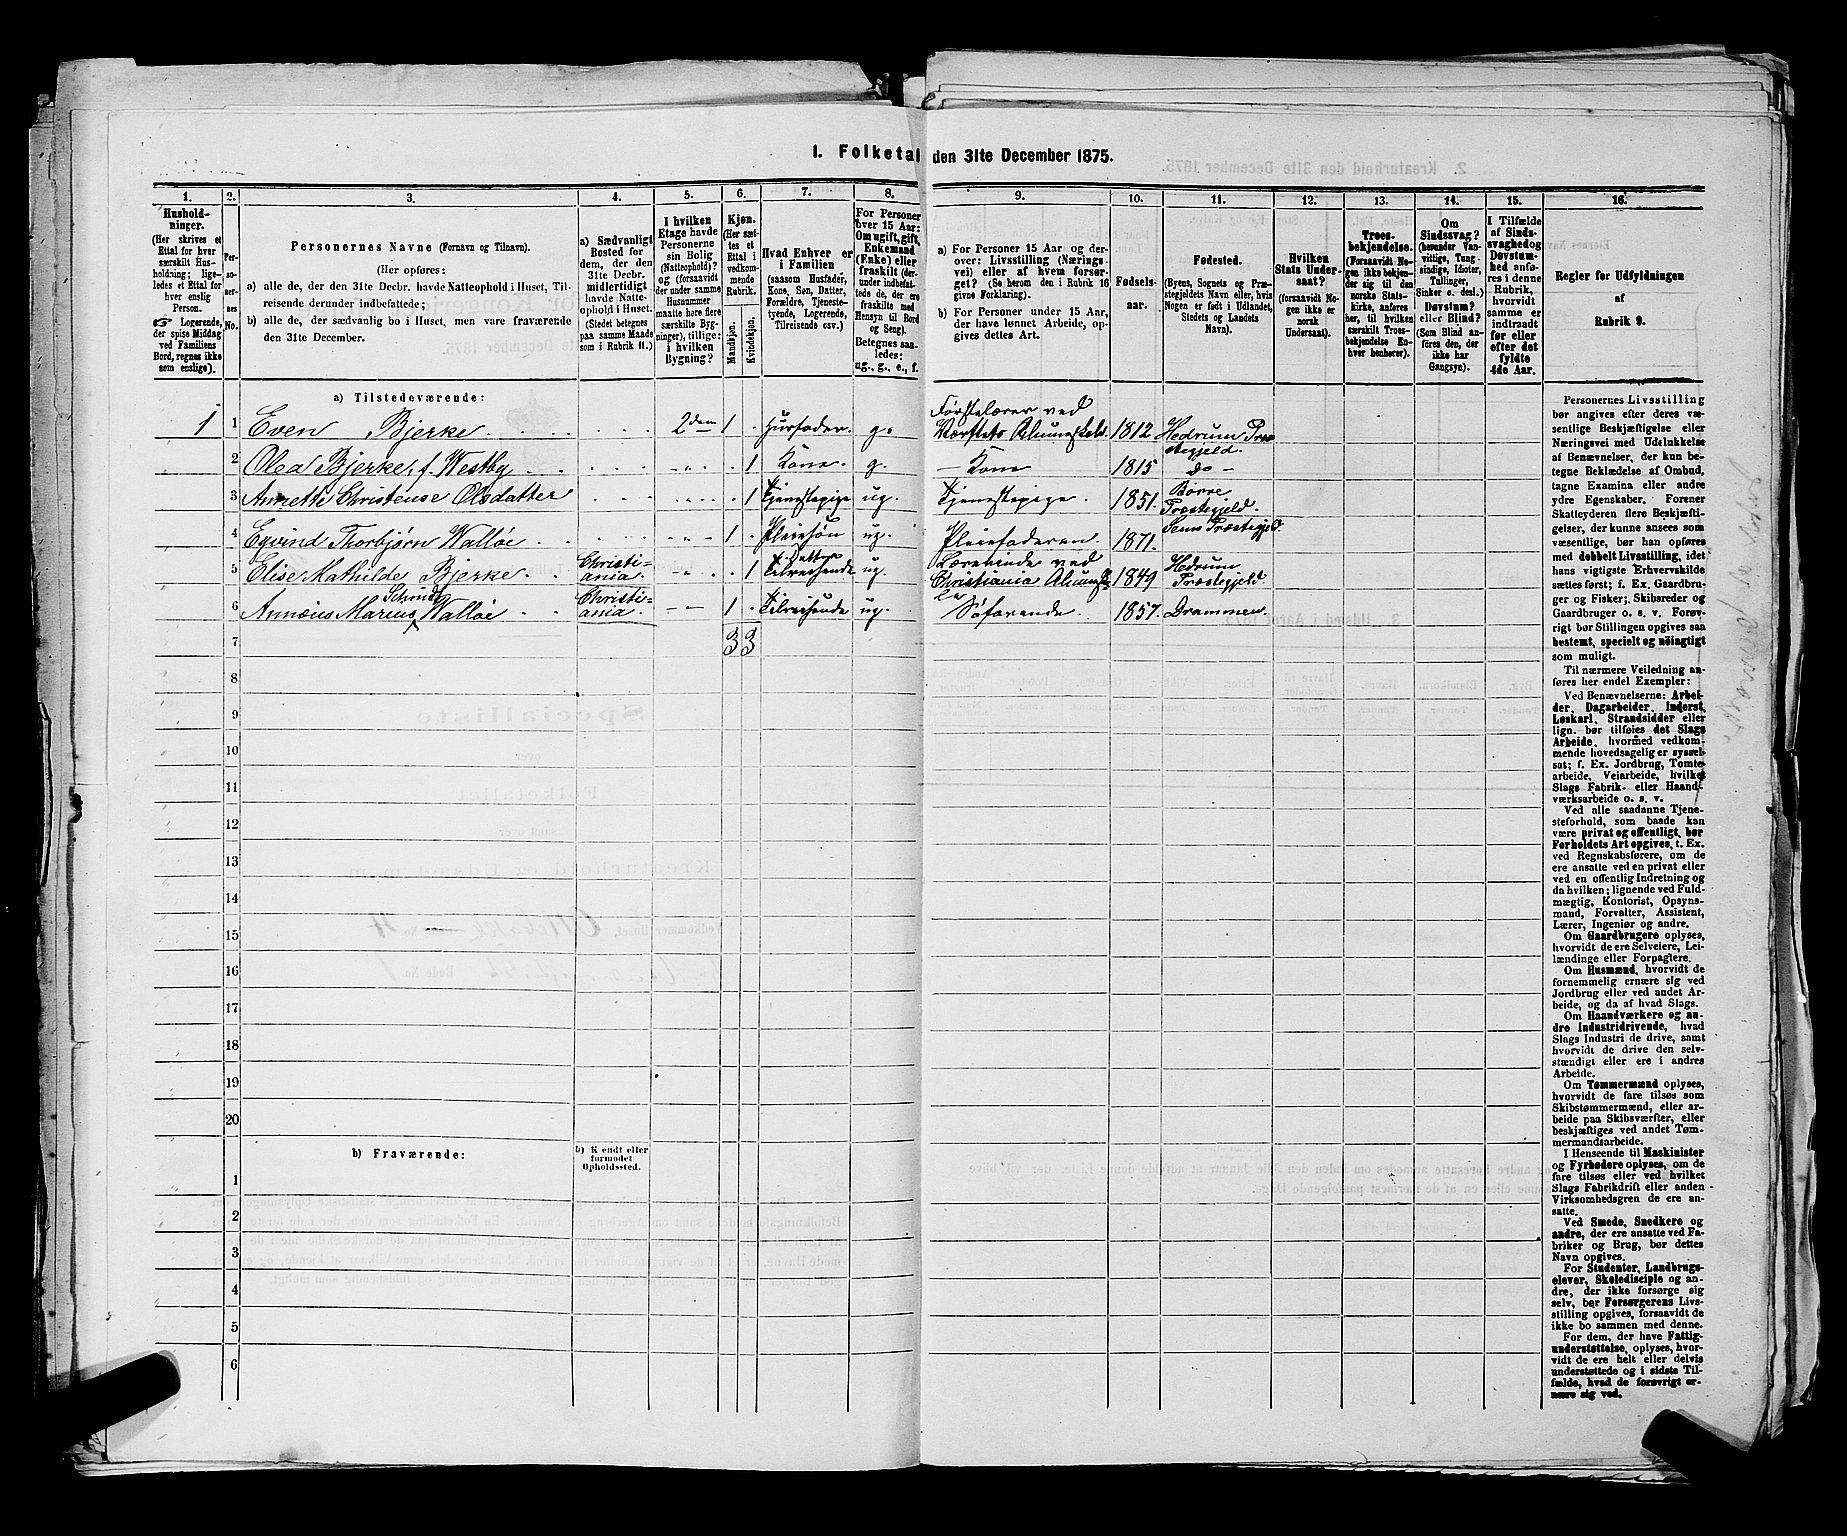 1. Folketal den 31te December 1875.
1.
2.
3.
4.
5.
6.
7.
8.
9.
10.
11.
12.
13.
14.
15.
16.
Hushold-
ninger.
(Her skrives et
Ettal for hver
særskilt Hus-
holdning; lige-
ledes et Ettal for
hver enslig
Person.
☞ Logerende,
der spise Middag
ved Familiens
Bord, regnes ikke
som enslige).
Per-
so-
ner-
nes
No.
Personernes Navne (Fornavn og Tilnavn).
(Her opføres:
a) alle de, der den 31te Decbr. havde Natteophold i Huset, Til-
reisende derunder indbefattede;
b) alle de, der sædvanlig bo i Huset, men vare fraværende
den 31te December.
a) Sædvanligt
Bosted for
dem, der den
31te Decbr.
midlertidigt
havde Natte-
ophold i Huset.
(Stedet betegnes
paa samme Maade
som i Rubrik 11.)
I hvilken
Etage havde
Personerne
sin Bolig
(Natteophold)?
og (forsaavidt
der under samme
Husnummer
maatte høre flere
særskilte Byg-
ninger), tillige:
i hvilken
Bygning?
Kjøn.
(Her sæt-
tes et
Ettal i
vedkom-
mende
Rubrik.
Mandkjøn.
Kvindekjøn.
Hvad Enhver er
i Familien
(saasom Husfader,
Kone, Søn, Datter,
Forældre, Tjeneste-
tyende, Logerende,
Tilreisende osv.)
For Personer
over 15 Aar:
Om ugift, gift,
Enkemand
(Enke) eller
fraskilt (der-
under indbefat-
tede de, der ere
fraskilte med
Hensyn til Bord
og Seng).
Betegnes saa-
ledes:
ug., g., e., f.
a) For Personer 15 Aar og der-
over: Livsstilling (Nærings-
vei) eller af hvem forsør-
get? (Se herom den i Rubrik 16
givne Forklaring).
b) For Personer under 15 Aar,
der have lønnet Arbeide, op-
gives dettes Art.
Fødsels-
aar.
Fødested.
(Byens, Sognets og Præ-
stegjeldets Navn eller, hvis
Nogen er født i Udlandet,
Stedets og Landets
Navn).
Hvilken
Stats Under-
saat?
(forsaavidt No-
gen ikke er
norsk
Undersaat).
Troes-
bekjendelse.
(Forsaavidt No-
gen ikke bekjen-
der sig til den
norske Stats-
kirke, anføres
her, til hvilken
særskilt Troes-
bekjendelse En-
hver henhører).
Om
Sindssvag?
(herunder Van-
vittige, Tung-
sindige, Idioter,
Tullinger,
Sinker o. desl.)
Døvstum?
eller Blind?
(Som Blind an-
føres den, der
ikke har
Gangsyn).
I Tilfælde
af Sinds-
svaghed og
Døvstum-
hed anfø-
res i denne
Rubrik,
hvorvidt
samme er
indtraadt
før eller
efter det
fyldte
4de Aar.
Regler for Udfyldningen
af
Rubrik 9.
a) Tilstedeværende:
1 1 Even Bjerke 2den 1 Husfader. g. Førstelærer ved Værftets Almueskole 1812 Hedrum Præstegjeld.
2 Olea Bjerke, f. Westby 1 Kone. g. — Kone 1815 do —
3 Annette Christense Olsdatter 1 Tjenestepige ug. Tjenestepige. 1851. Borre Præstegjeld.
4 Eyvind Thorbjørn Walløe 1 Pleiesøn ug. Pleiefaderen. 1871. Sems Præstegjeld.
5 Elise Mathilde Bjerke Christiania. 1 Datter Tilreisende ug. Lærerinde ved Christiania 1849 Hedrum Præstegjeld.
6 Annæus Marius Schmidt Walløe Christiania 1 Tilreisende ug. Søfarende. 1857. Drammen.
7 3 3
8
9
10
11
12
13
14
15
16
17
18
19
20
b) Fraværende:
b) Kjendt eller
formodet
Opholdssted.
1
2
3
4
5
6
Personernes Livsstilling
bør angives efter deres væ-
sentlige Beskjæftigelse eller
Næringsvei med Udelukkelse
af Benævnelser, der kun be-
tegne Beklædelse af Ombud,
tagne Examina eller andre
ydre Egenskaber. Forener
Skatteyderen flere Beskjæfti-
gelser, der kunne ansees som
væsentlige, bør han opføres
med dobbelt Livsstilling, idet
hans vigtigste Erhvervskilde
sættes først; f. Ex. Gaardbru-
ger og Fisker; Skibsreder og
Gaardbruger o. s. v. Forøv-
rigt bør Stillingen opgives saa
bestemt, specielt og nøiagtigt
som muligt.
Til nærmere Veiledning an-
føres her endel Exempler:
Ved Benævnelserne: Arbei-
der, Dagarbeider, Inderst,
Løskarl, Strandsidder eller
lign. bør tilføies det Slags
Arbeide, hvormed vedkom-
mende hovedsagelig er syssel-
sat; f. Ex. Jordbrug, Tomte-
arbeide, Veiarbeide, hvilket
Slags Fabrik- eller Haand-
værksarbeide o. s. v.
Ved alle saadanne Tjene-
steforhold, som baade kan
være privat og offentligt, bør
Forholdets Art opgives, t. Ex.
ved Regnskabsførere, om de
ere ansatte ved en privat eller
ved en offentlig Indretning og
da hvilken; lignende ved Fuld-
mægtig, Kontorist, Opsyns-
mand, Forvalter, Assistent,
Lærer, Ingeniør og andre.
Om Gaardbrugere oplyses,
hvorvidt de ere Selveiere, Lei-
lændinge eller Forpagtere.
Om Husmænd, hvorvidt de
fornemmelig ernære sig ved
Jordbrug eller ved andet Ar-
beide, og da af hvad Slags.
Om Haandværkere og an-
dre Industridrivende, hvad
Slags Industri de drive, samt
hvorvidt de drive den selv-
stændigt eller ere i andres
Arbeide.
Om Tømmermænd oplyses,
hvorvidt de fare tilsøs som
Skibstømmermænd, eller ar-
beide paa Skibsværfter, eller
beskjæftiges ved andet Tøm-
mermandsarbeide.
I Henseende til Maskinister
og Fyrbødere oplyses, om de
fare tilsøs eller ved hvilket
Slags Fabrikdrift eller anden
Virksomhedsgren de ere an-
satte.
Ved Smede, Snedkere og
andre, der ere ansatte ved Fa-
briker og Brug, bør dettes
Navn opgives.
For Studenter, Landbrugs-
elever, Skoledisciple og an-
dre, der ikke forsørge sig
selv, bør Forsørgerens Livs-
stilling opgives, forsaavidt de
ikke bo sammen med denne.
For dem, der have Fattig-
understøttelse, oplyses, hvor-
vidt de ere helt eller delvis
understøttede og i sidste Til-
fælde, hvad de forøvrigt er-
nære sig ved.